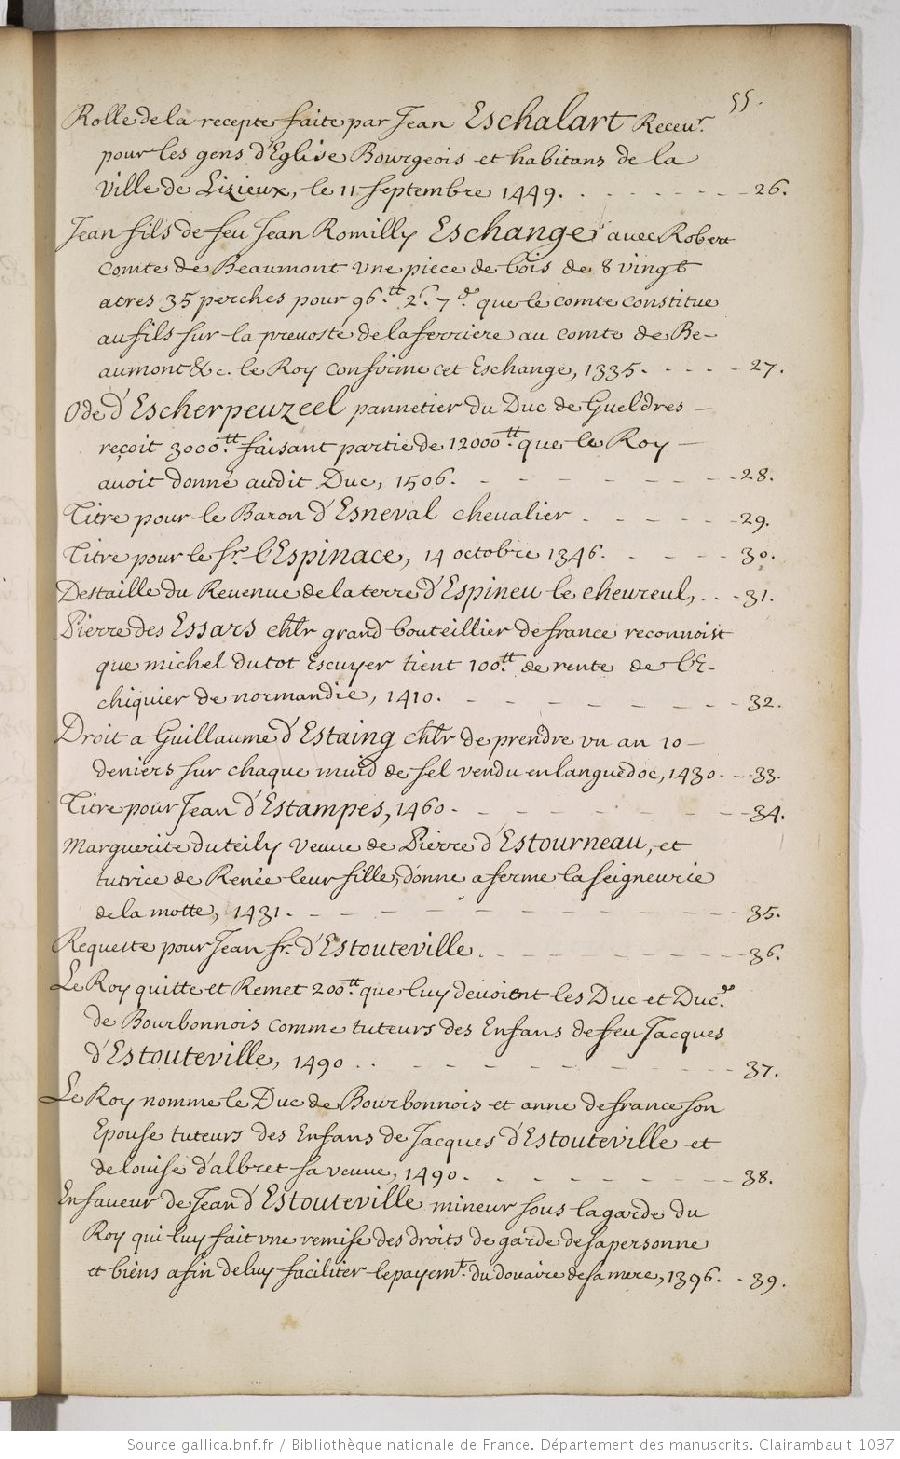 55.
Rolle de la recepte faite par Jean Eschalart Receur.
pour les gens d'Eglise Bourgeois et habitans de la
Ville de Lizieux, le 11 septembre 1449. . - - - - - - 26.
Jean fils de feu Jean Romilly Eschange avec Robert
Comte de Beaumont une piece de bois de 8 vingt
acres 35 perches pour 96.tt 2s. 7d. que le comte constitue
au fils sur la prevosté de la ferriere au comte de Be-
aumont &c. le Roy confirme cet Eschange, 1335. - - - - 27.
Ode d'Escherpeuzeel pannetier du Duc de Gueldres -
reçoit 3000tt. faisant partie de 12000tt. que le Roy -
avoit donné audit Duc, 1506. - - - - - - - 28.
Titre pour le Baron d'Esneval chevalier . - - - - 29.
Titre pour le Sr. l'Espinace, 14 octobre 1346. - - - - 30.
Destaille du Revenue de la terre d'Espineu le cheureul, . - - 31.
Pierre des Essars chlr grand bouteillier de france reconnoist
que michel du tot Escuyer tient 100tt. de rente de l'E-
chiquier de normandie, 1410. - - - - - - - 32.
Droit a Guillaume d'Estaing chlr de prendre un an 10 -
deniers sur chaque muid de sel vendu en languedoc, 1430. - - 33.
Titre pour Jean d'Estampes, 1460. - - - - - - - - 34.
Marguerite du teily Veuve de Pierre d'Estourneau, et
tutrice de Renée leur fille, donne a ferme la seigneurie
de la motte, 1431. - - - - - - - - - - - 35.
Requette pour Jean sr. d'Estouteville. - - - - - - - 36.
Le Roy quitte et Remet 200tt. que luy devoient les Duc et Ducse.
de Bourbonnois comme tuteurs des Enfans de feu Jacques
d'Estouteville, 1490 . . - - - - - - - - 37.
Le Roy nomme le Duc de Bourbonnois et anne de france son
Epouse tuteurs des Enfans de Jacques d'Estouteville et
de louise d'albret sa veuve, 1490. - - - - - - - - 38.
En faveur de Jean d'Estouteville mineur sous la garde du
Roy qui luy fait une remise des droits de garde de sa personne
et biens afin de luy faciliter le payemt. du douaire de sa mere, 1396. - 39.
Source gallica.bnf.fr / Bibliothèque nationale de France. Département des manuscrits. Clairambault 1037